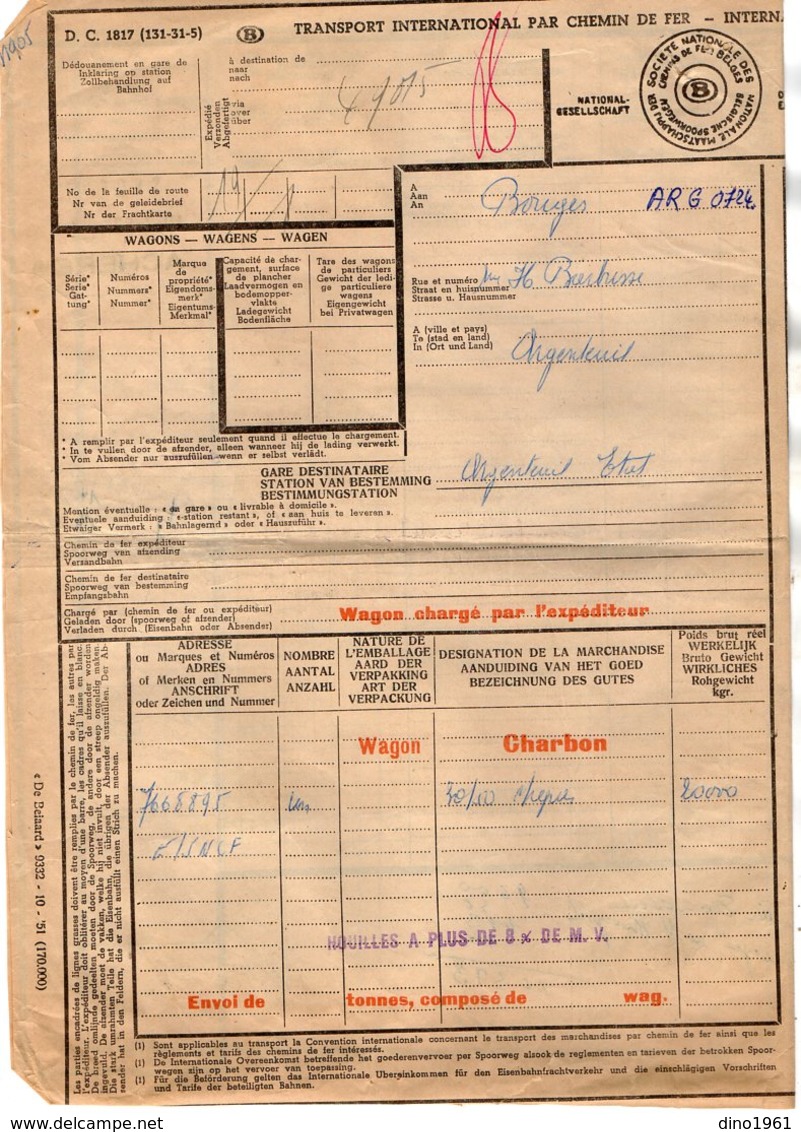 D. C. 1817 (131-31-5)
B
TRANSPORT INTERNATIONAL PAR CHEMIN DE FER — INTERNA
Dédouanement en gare de
Inklaring op station
Zollbehandlung auf
Bahnhof
à destination de
naar
nach
Expédié
Verzonden
Abgefertigt
via
over
über
NATIONAL-
GESELLSCHAFT
SOCIETE NATIONALE DES
CHEMINS DE FER BELGES
B
NATIONALE MAATSCHAPPIJ DER
BELGISCHE SPOORWEGEN
No de la feuille de route
Nr van de geleidebrief
Nr der Frachtkarte
A
Aan
An
ARG 0724
WAGONS — WAGENS — WAGEN
Série*
Serie*
Gat-
tung*
Numéros
Nummers*
Nummer*
Marque
de
propriété*
Eigendoms-
merk*
Eigentums-
Merkmal*
Capacité de char-
gement, surface
de plancher
Laadvermogen en
bodemopper-
vlakte
Ladegewicht
Bodenfläche
Tare des wagons
de particuliers
Gewicht der ledi-
ge particuliere
wagens
Eigengewicht
bei Privatwagen
Rue et numéro
Straat en huisnummer
Strasse u. Hausnummer
A (ville et pays)
Te (stad en land)
In (Ort und Land)
Argenteuil
* A remplir par l'expéditeur seulement quand il effectue le chargement.
* In te vullen door de afzender, alleen wanneer hij de lading verwerkt.
* Vom Absender nur auszufüllen wenn er selbst verlädt.
GARE DESTINATAIRE
STATION VAN BESTEMMING
BESTIMMUNGSTATION
Argenteuil Etat
Mention éventuelle : « en gare » ou « livrable à domicile ».
Eventuele aanduiding : « station restant », of « aan huis te leveren ».
Etwaiger Vermerk : « Bahnlagernd » oder « Hauszuführ ».
Chemin de fer expéditeur
Spoorweg van afzending
Versandbahn
Chemin de fer destinataire
Spoorweg van bestemming
Empfangsbahn
Chargé par (chemin de fer ou expéditeur)
Geladen door (spoorweg of afzender)
Verladen durch (Eisenbahn oder Absender)
Wagon chargé par l'expéditeur
ADRESSE
ou Marques et Numéros
ADRES
of Merken en Nummers
ANSCHRIFT
oder Zeichen und Nummer
NOMBRE
AANTAL
ANZAHL
NATURE DE
L'EMBALLAGE
AARD DER
VERPAKKING
ART DER
VERPACKUNG
DESIGNATION DE LA MARCHANDISE
AANDUIDING VAN HET GOED
BEZEICHNUNG DES GUTES
Poids brut réel
WERKELIJK
Bruto Gewicht
WIRKLICHES
Rohgewicht
kgr.
Wagon
Charbon
7668895
un
20000
SNCF
HOUILLES A PLUS DE 8% DE M. V.
Envoi de tonnes, composé de wag.
(1) Sont applicables au transport la Convention internationale concernant le transport des marchandises par chemin de fer ainsi que les
règlements et tarifs des chemins de fer intéressés.
(1) De Internationale Overeenkomst betreffende het goederenvervoer per Spoorweg alsook de reglementen en tarieven der betrokken Spoor-
wegen zijn op het vervoer van toepassing.
(1) Für die Beförderung gelten das Internationale Übereinkommen für den Eisenbahnfrachtverkehr und die einschlägigen Vorschriften
und Tarife der beteiligten Bahnen.
Les parties encadrées de lignes grasses doivent être remplies par le chemin de fer, les autres par
l'expéditeur. L'expéditeur doit oblitérer au moyen d'une barre, les cadres qu'il laisse en blanc.
« De Beinard » 0332 - 10 - '51 (170.000)
dino1961